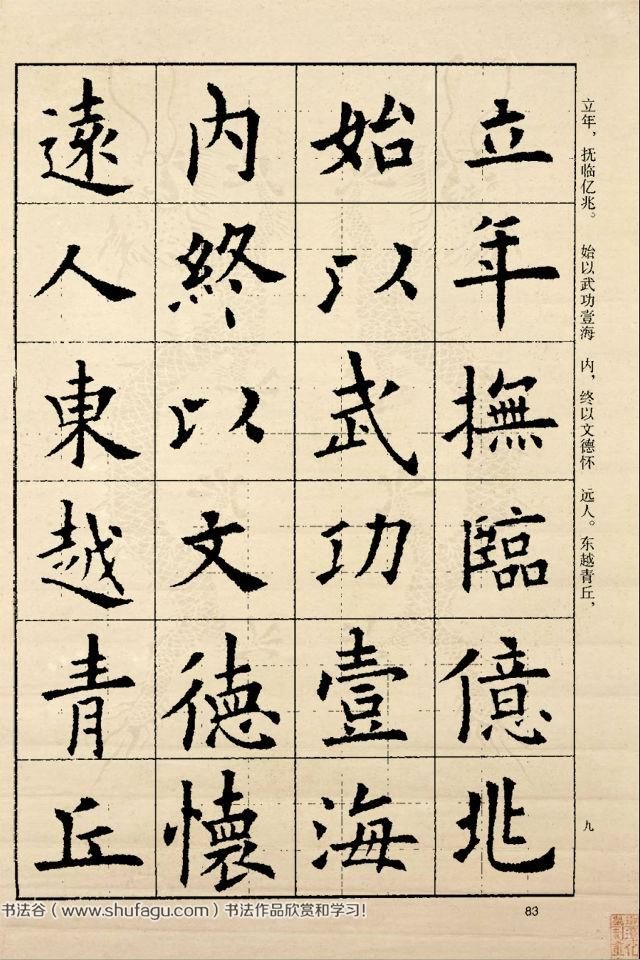 立年撫臨億兆
始以武功壹海
內終以文德懷
遠人東越青丘
立年，抚临亿兆。 始以武功壹海 内，终以文德怀 远人。东越青丘，
九
书法谷（www.shufagu.com）书法作品欣赏和学习！
83